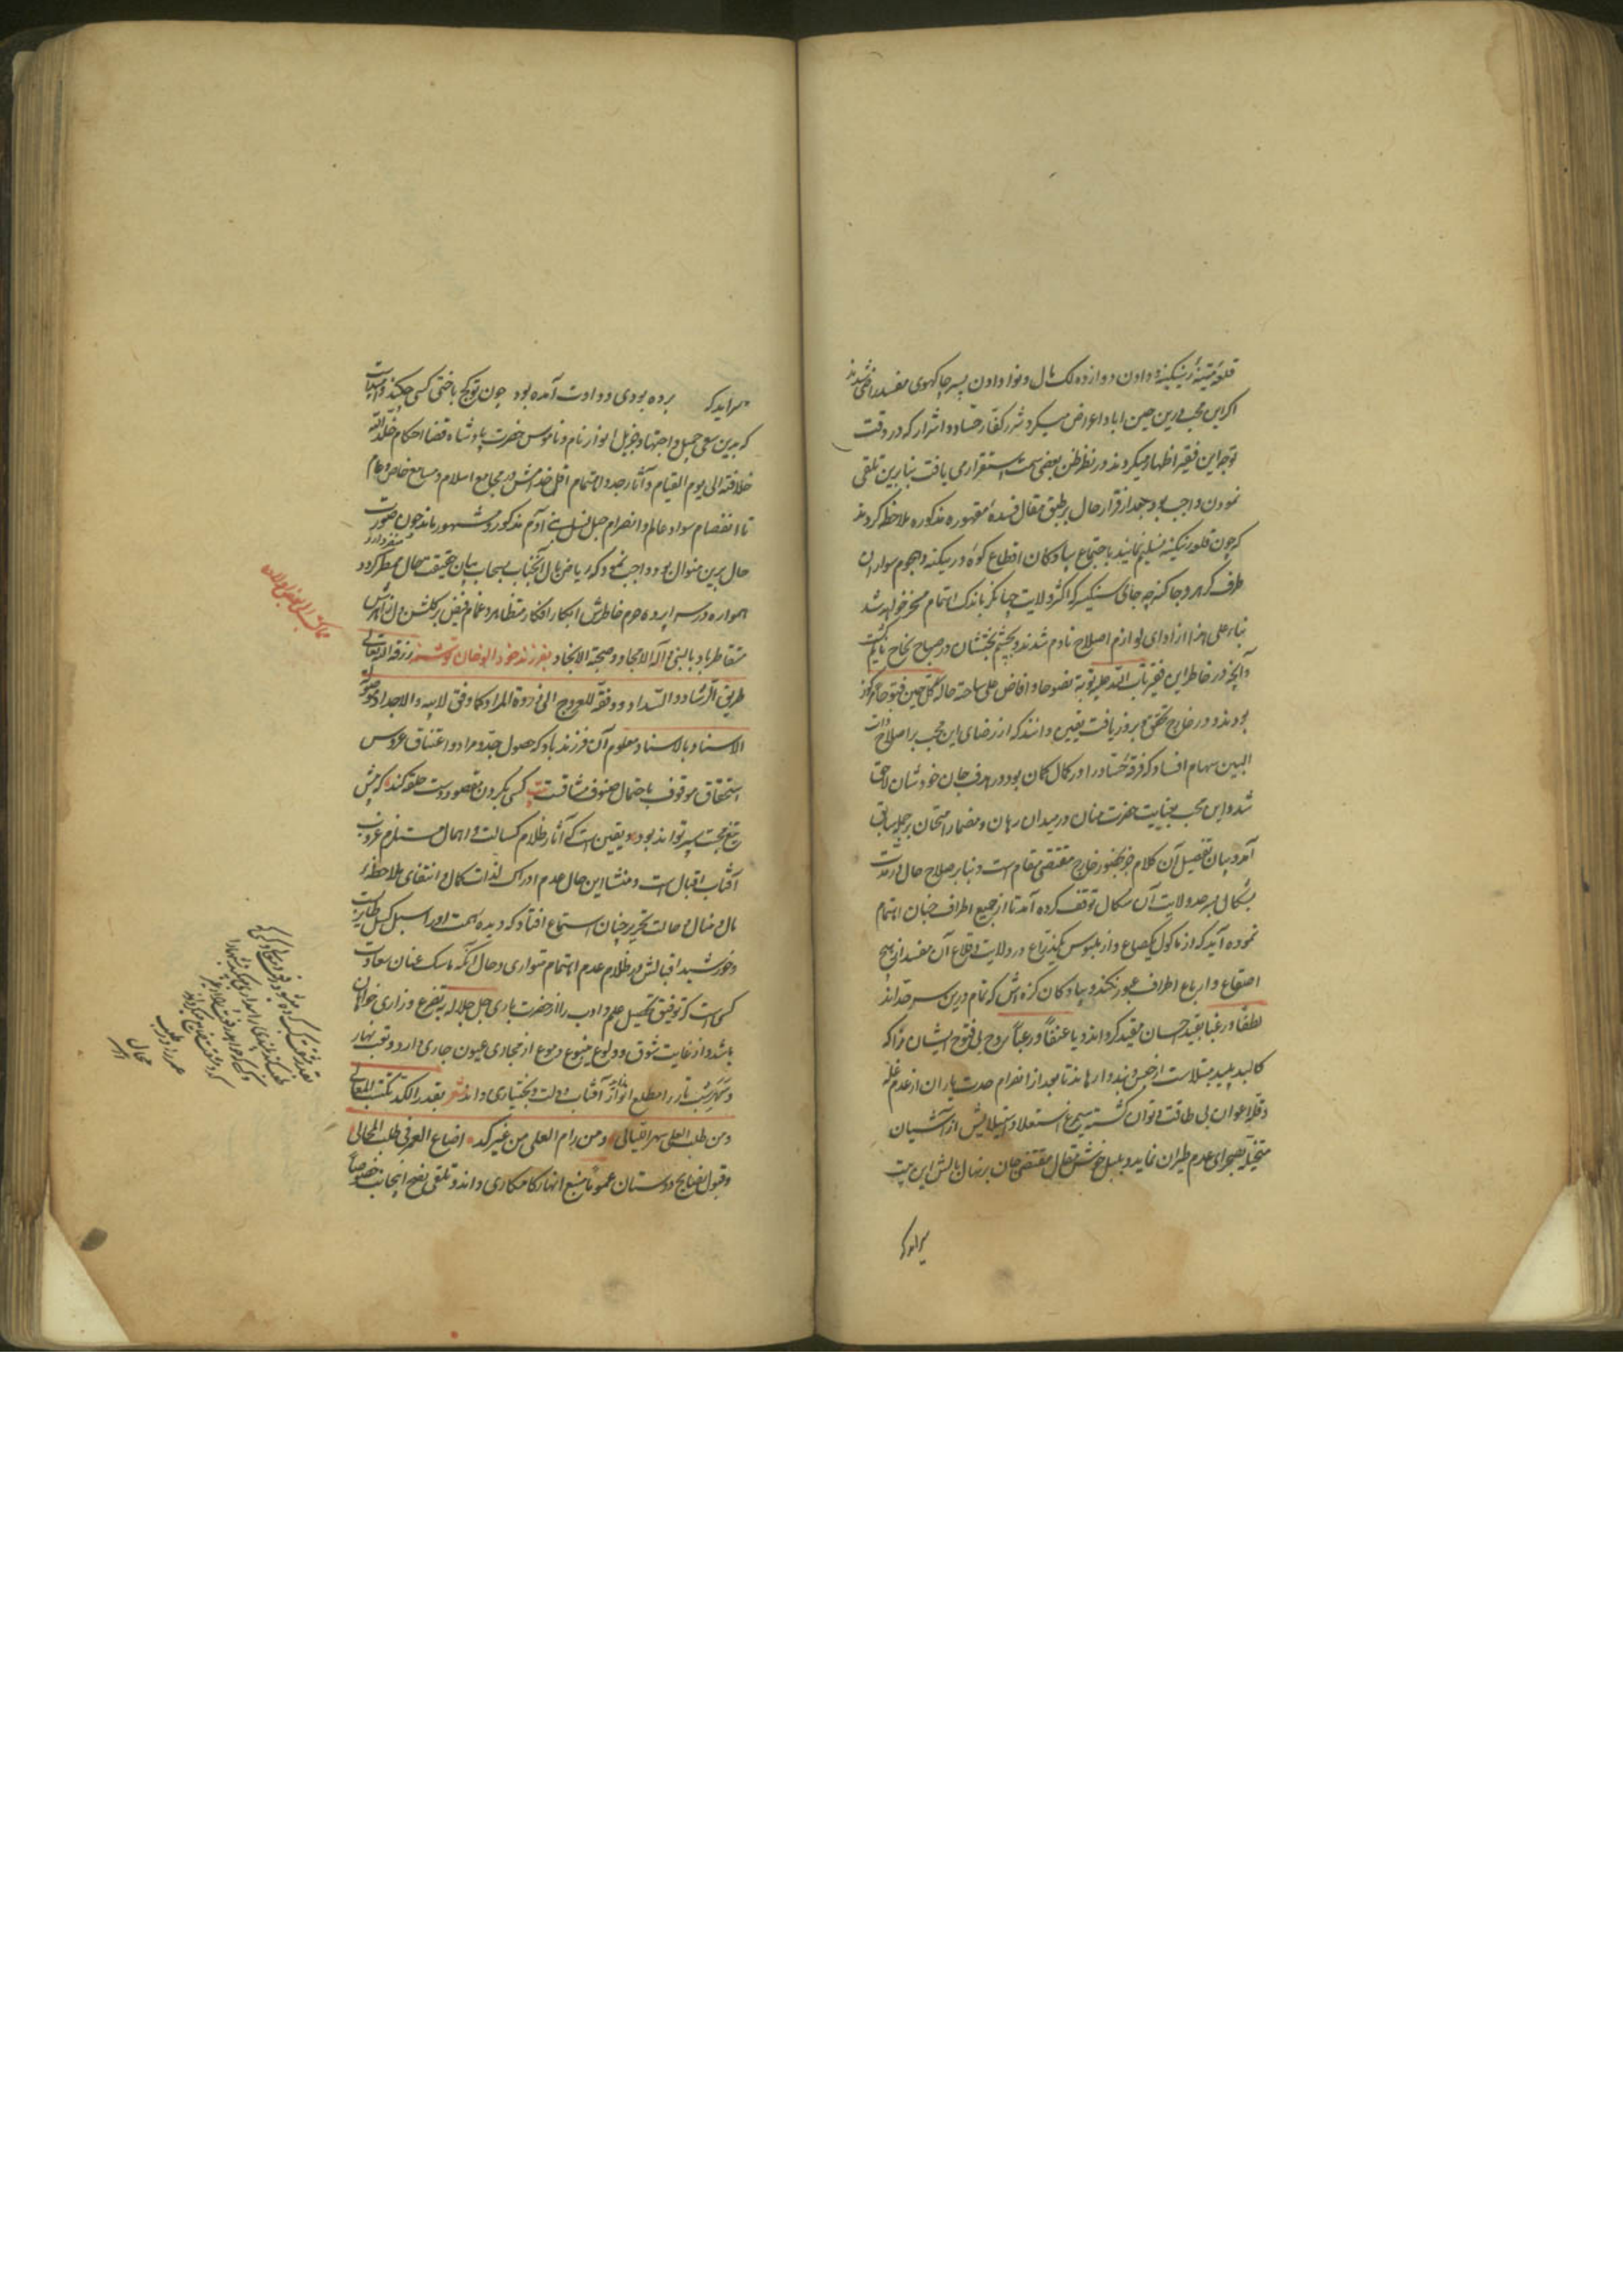 قلعهٔ متینهٔ رنیکنه و دادن دوازده لک مال و نوا و دادن پسر جاکهوی مفسد راضی شدند
اگر این محب درین حین ابا و اعراض میکرد شرر کفار حساد و اشرار که در وقت
توجه این فقیر اظهار میکردند در نظر ظن بعضی سمت استقراری یافت بنابرین تلقی
نمودن واجب بود بعد از قرار حال بر طبق مقال فسدهٔ مقهوره مذکوره ملاحظه کردند
که چون قلعه رنیکنه تسلیم نمایند باجتماع پیادکان اقطاع کوه رنیکنه و هجوم سواران
طرف کرهر و جاکنه چه جای سنکیسر که اکثر ولایت جیانکر باندک اهتمام مسخر خواهد شد
بناء علی هذا از ادای لوازم اصلاح نادم شدند و بچشم بختشان در صباح نجاح نایم گشت
و آنچه در خاطر این فقیر تاب الله علیه توبة نصوحا و افاض علی ساحة حاله فی کل حین فتوحا مرکوز
بودند و در خارج تحقق و بروز یافت یقین دانند که از رضای این محب بر اصلاح ذات
البین سهام افساد که فرقهٔ حساد را در کمال کمان بود در هدف جان خودشان لاحق
شد و این محب بعنایت حضرت منان در میدان رهان و مضمار امتحان بر جمله سابق
آمد و بیان تفصیل آن کلام جز بحضور خارج مقتضی مقام است و بنابر صلاح حال در مدت
بشکال بر سرحد ولایت آن سکال توقف کرده آمد تا از جمیع اطراف چنان اهتمام
نموده آید که از ماکول یکصاع و از ملبوس یکذراع در ولایت و قلاع آن مفسد از هیچ
اصقاع و ارباع اطراف عبور نکند و پیادکان کزه‌اش که تمام درین سرحد اند
لطفا و رغبا بقید احسان مقید گرداند و یا عنفاً و رعباً روح بی فتوح ایشان را که
کالبد پلید مبتلاست از حبس و بند وارهاند تا بعد از انفرام حدت یاران از عدم غله
و قلت اعوان بی طاقت و توان گشته سیمرغ استعلا و استیلایش از آشیان
متخیله بصحرای عدم طیران نماید و بلبل خوش مقال مقتضی حال بر نهال بالش این بیت
سرایدکه
سرایدکه برده بودی و داوت آمده بود چون تو کج باختی کسی چکند و امید است
که بدین سعی جمیل و اجتهاد جزیل انوار نام و ناموس حضرت پادشاه قضا احکام خلد الله
خلافته الی یوم القیام و آثار جد و اهتمام اقل خدامش در مجامع اسلام و مسامع خاص و عام
تا انفصام سواد عالم و انصرام حبل نسل بنی آدم مذکور و مشهور ماند چون صورت
حال برین منوال بود واجب نمود که ریاض بال آنجناب بسحاب بیان حقیقت حال ممطر گردد
همواره در سراپرده حرم خاطرش ابکار افکار متظاهر و غمام فیض بر گلشن دل ازهرش
متقاطر باد بالنبی و آله الامجاد و صحبه الانجاد بفرزند خود الوخان نوشته رزقه الله تعالی
طریق الرشاد و السداد و وفقه للعروج الی ذروة المراد کما وفق لابیه و الاجداد
الاسناد بالاسناد معلوم آن فرزند باد که حصول جد و مراد و اعتناق عروس
استحقاق موقوف باحتمال صنوف مشاقست بیت کسی بگردن مقصود دست حلقه کند که پیش
تیغ محبت سپر تواند بود و یقین است که آثار ظلام کسالت و اهمال مستلزم غروب
آفتاب اقبال است و منشا این حال عدم ادراک لذات کمال و انتفای ملاحظه
مال و منال و حالت تحریر چنان استماع افتاد که دیده همت او را سبل کسل طاریست
و خورشید اقبالش در ظلام عدم اهتمام متواری و حال آنکه ماسک عنان سعادت
کسی است که توفیق تحصیل علم و ادب را از حضرت باری جل جلاله بتضرع و زاری خواهان
باشد و از غایت شوق و ولوع ینبوع دموع از مجاری عیون جاری دارد و تعب نهار
و سهر شب تار را مطلع انوار آفتاب دولت و بختیاری داند شعر بقدر الکد تکتسب المعالی
و من طلب العلی سهر اللیالی و من رام العلی من غیر کد اضاع العمر فی طلب المحال
و قبول نصایح دوستان عموماً منبع انهار کامکاری داند و تلقی نصح اینجانب خصوصاً